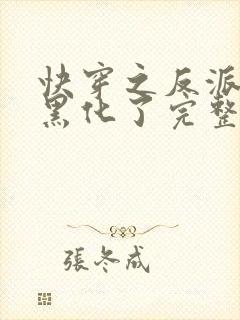 快穿之反派
黑化了完整
張冬成